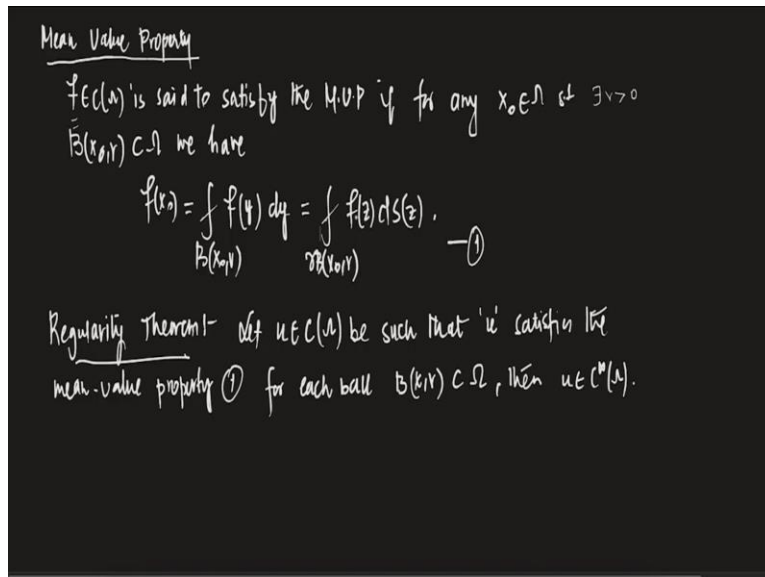 Mean Value Property
f∈C(Ω) is said to satisfy the M.V.P if for any x₀∈Ω st ∃r>0
B(x₀,r) ⊂ Ω we have
f(x₀) = ⨍ f(y) dy = ⨍ f(z) dS(z). —①
B(x₀,r) ∂B(x₀,r)
Regularity Theorem:- Let u∈C(Ω) be such that 'u' satisfies the
mean-value property ① for each ball B(x,r) ⊂ Ω, then u∈C^∞(Ω).